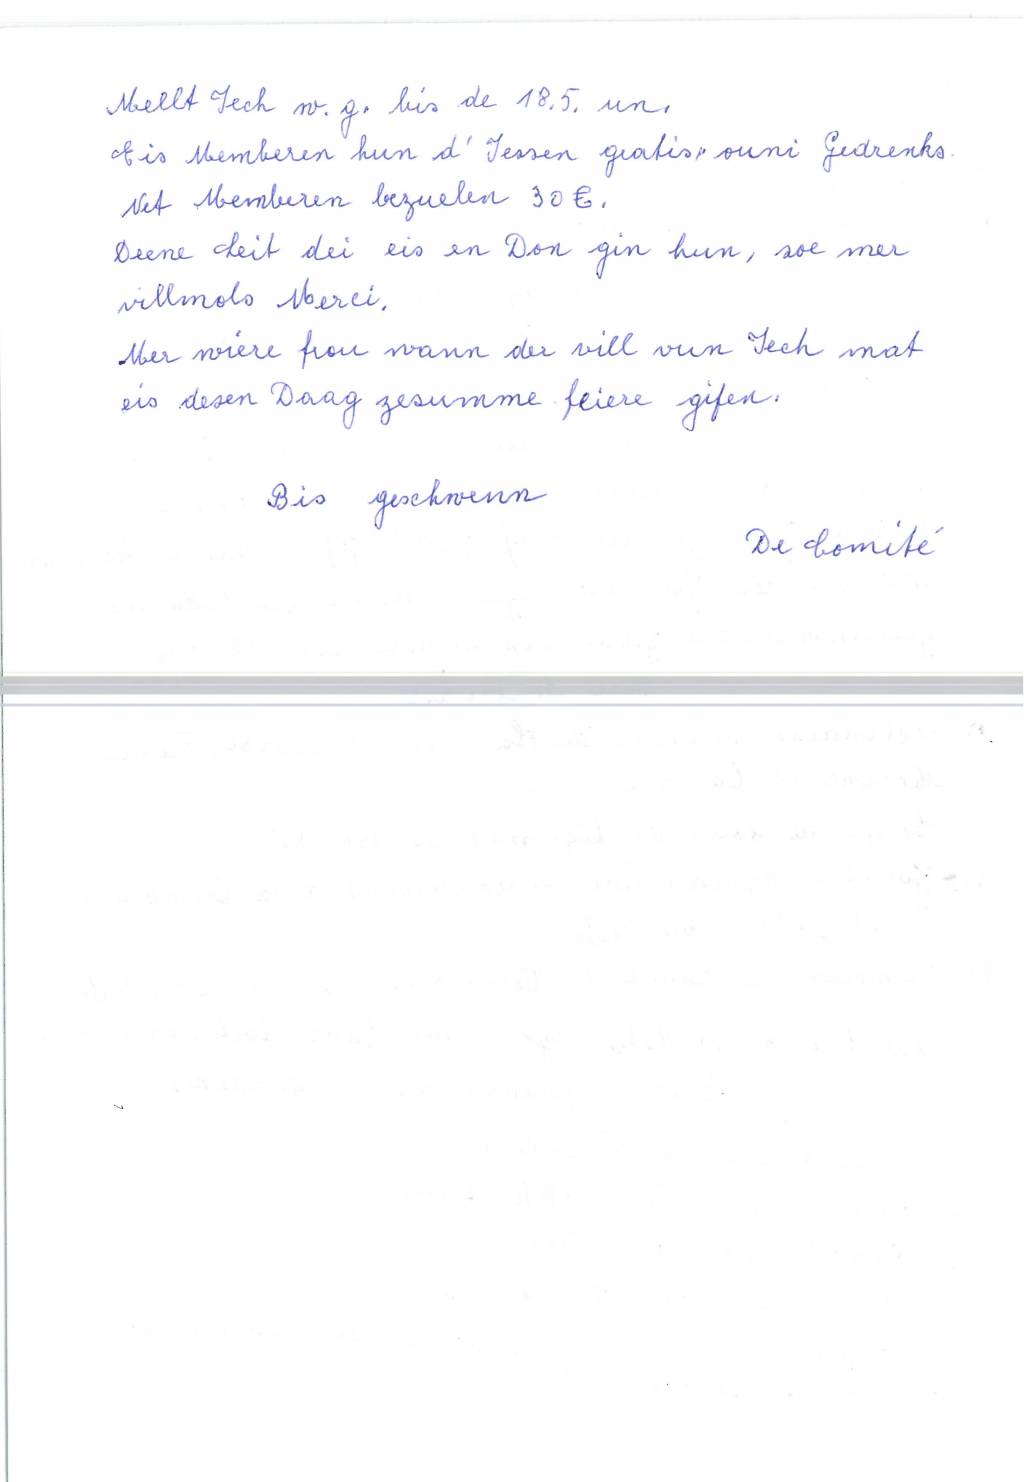 Mellt Iech w. g. bis de 18.5. un.
Eis Memberen hun d'Iessen gratis, ouni Gedrenks.
Net Memberen bezuelen 30 €.
Deene Leit dei eis en Don gin hun, soe mer
villmols Merci.
Mer wiere frou wann der vill vun Iech mat
eis desen Daag zesumme feiere gifen.
Bis geschwenn
De Comité